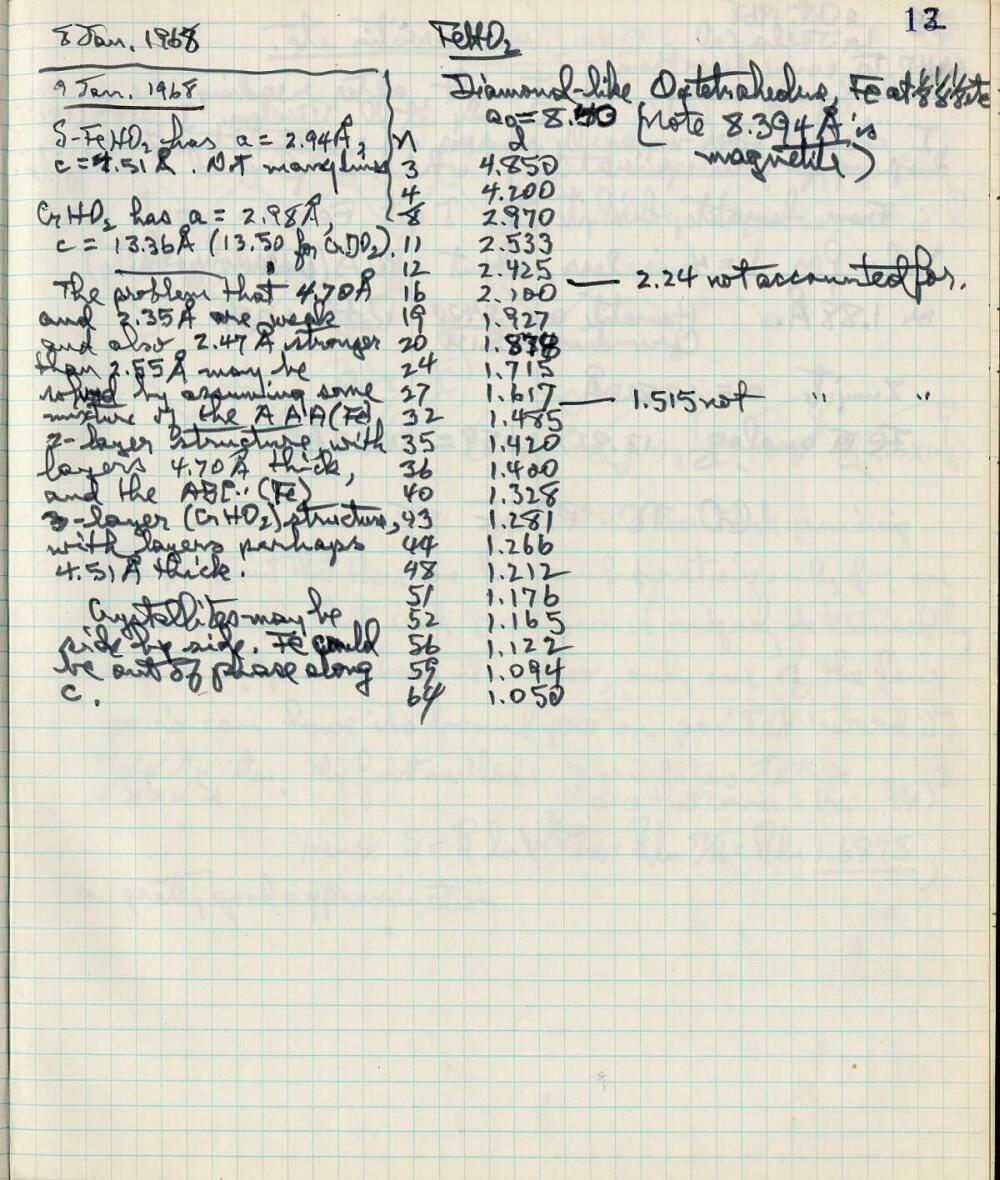 13
8 Jan. 1968
FeHO₂
9 Jan. 1968
δ-FeHO₂ has a = 2.94Å,
c = 4.51 Å. Not many lines
CrHO₂ has a = 2.98Å,
c = 13.36Å (13.50 for CrDO₂).
The problem that 4.70Å
and 2.35Å are weak
and also 2.47 Å stronger
than 2.55Å may be
solved by assuming some
mixture of the AAA(Fe)
2-layer structure with
layers 4.70Å thick,
and the ABC··(Fe)
3-layer (CrHO₂) structure,
with layers perhaps
4.51Å thick.
Crystallites may be
side by side. Fe could
be out of phase along
c.
Diamond-like Octetrahedra, Fe at 1/8 1/8 1/8 etc
a₀ = 8.40 (Note 8.394 Å is
magnetite)
n d
3 4.850
4 4.200
8 2.970
11 2.533
12 2.425
16 2.100 — 2.24 not accounted for.
19 1.927
20 1.878
24 1.715
27 1.617 — 1.515 not " "
32 1.485
35 1.420
36 1.400
40 1.328
43 1.281
44 1.266
48 1.212
51 1.176
52 1.165
56 1.122
59 1.094
64 1.050